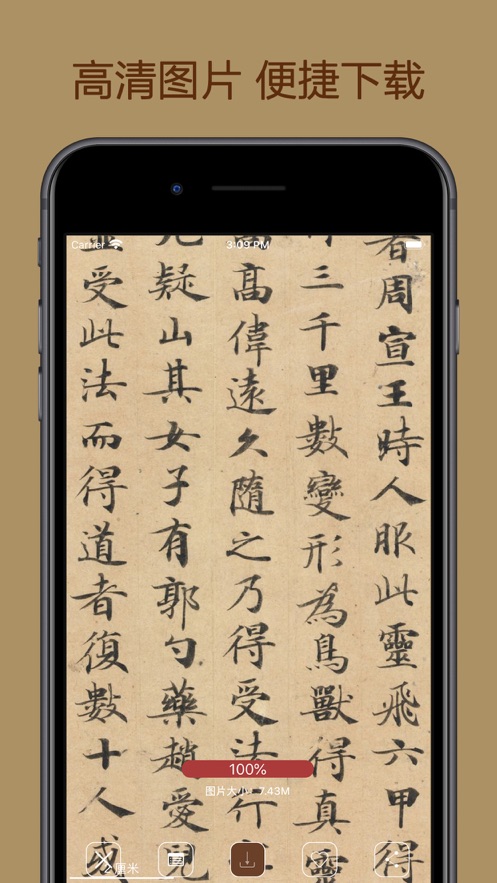 高清图片 便捷下载
Carrier 3:09 PM
者周宣王時人服此靈飛六甲得
三千里數變形為鳥獸得真靈
高偉遠久隨之乃得受法行
疑山其女子有郭勺藥趙愛兒
受此法而得道者復數十人或
100%
图片大小：7.43M
2 厘米